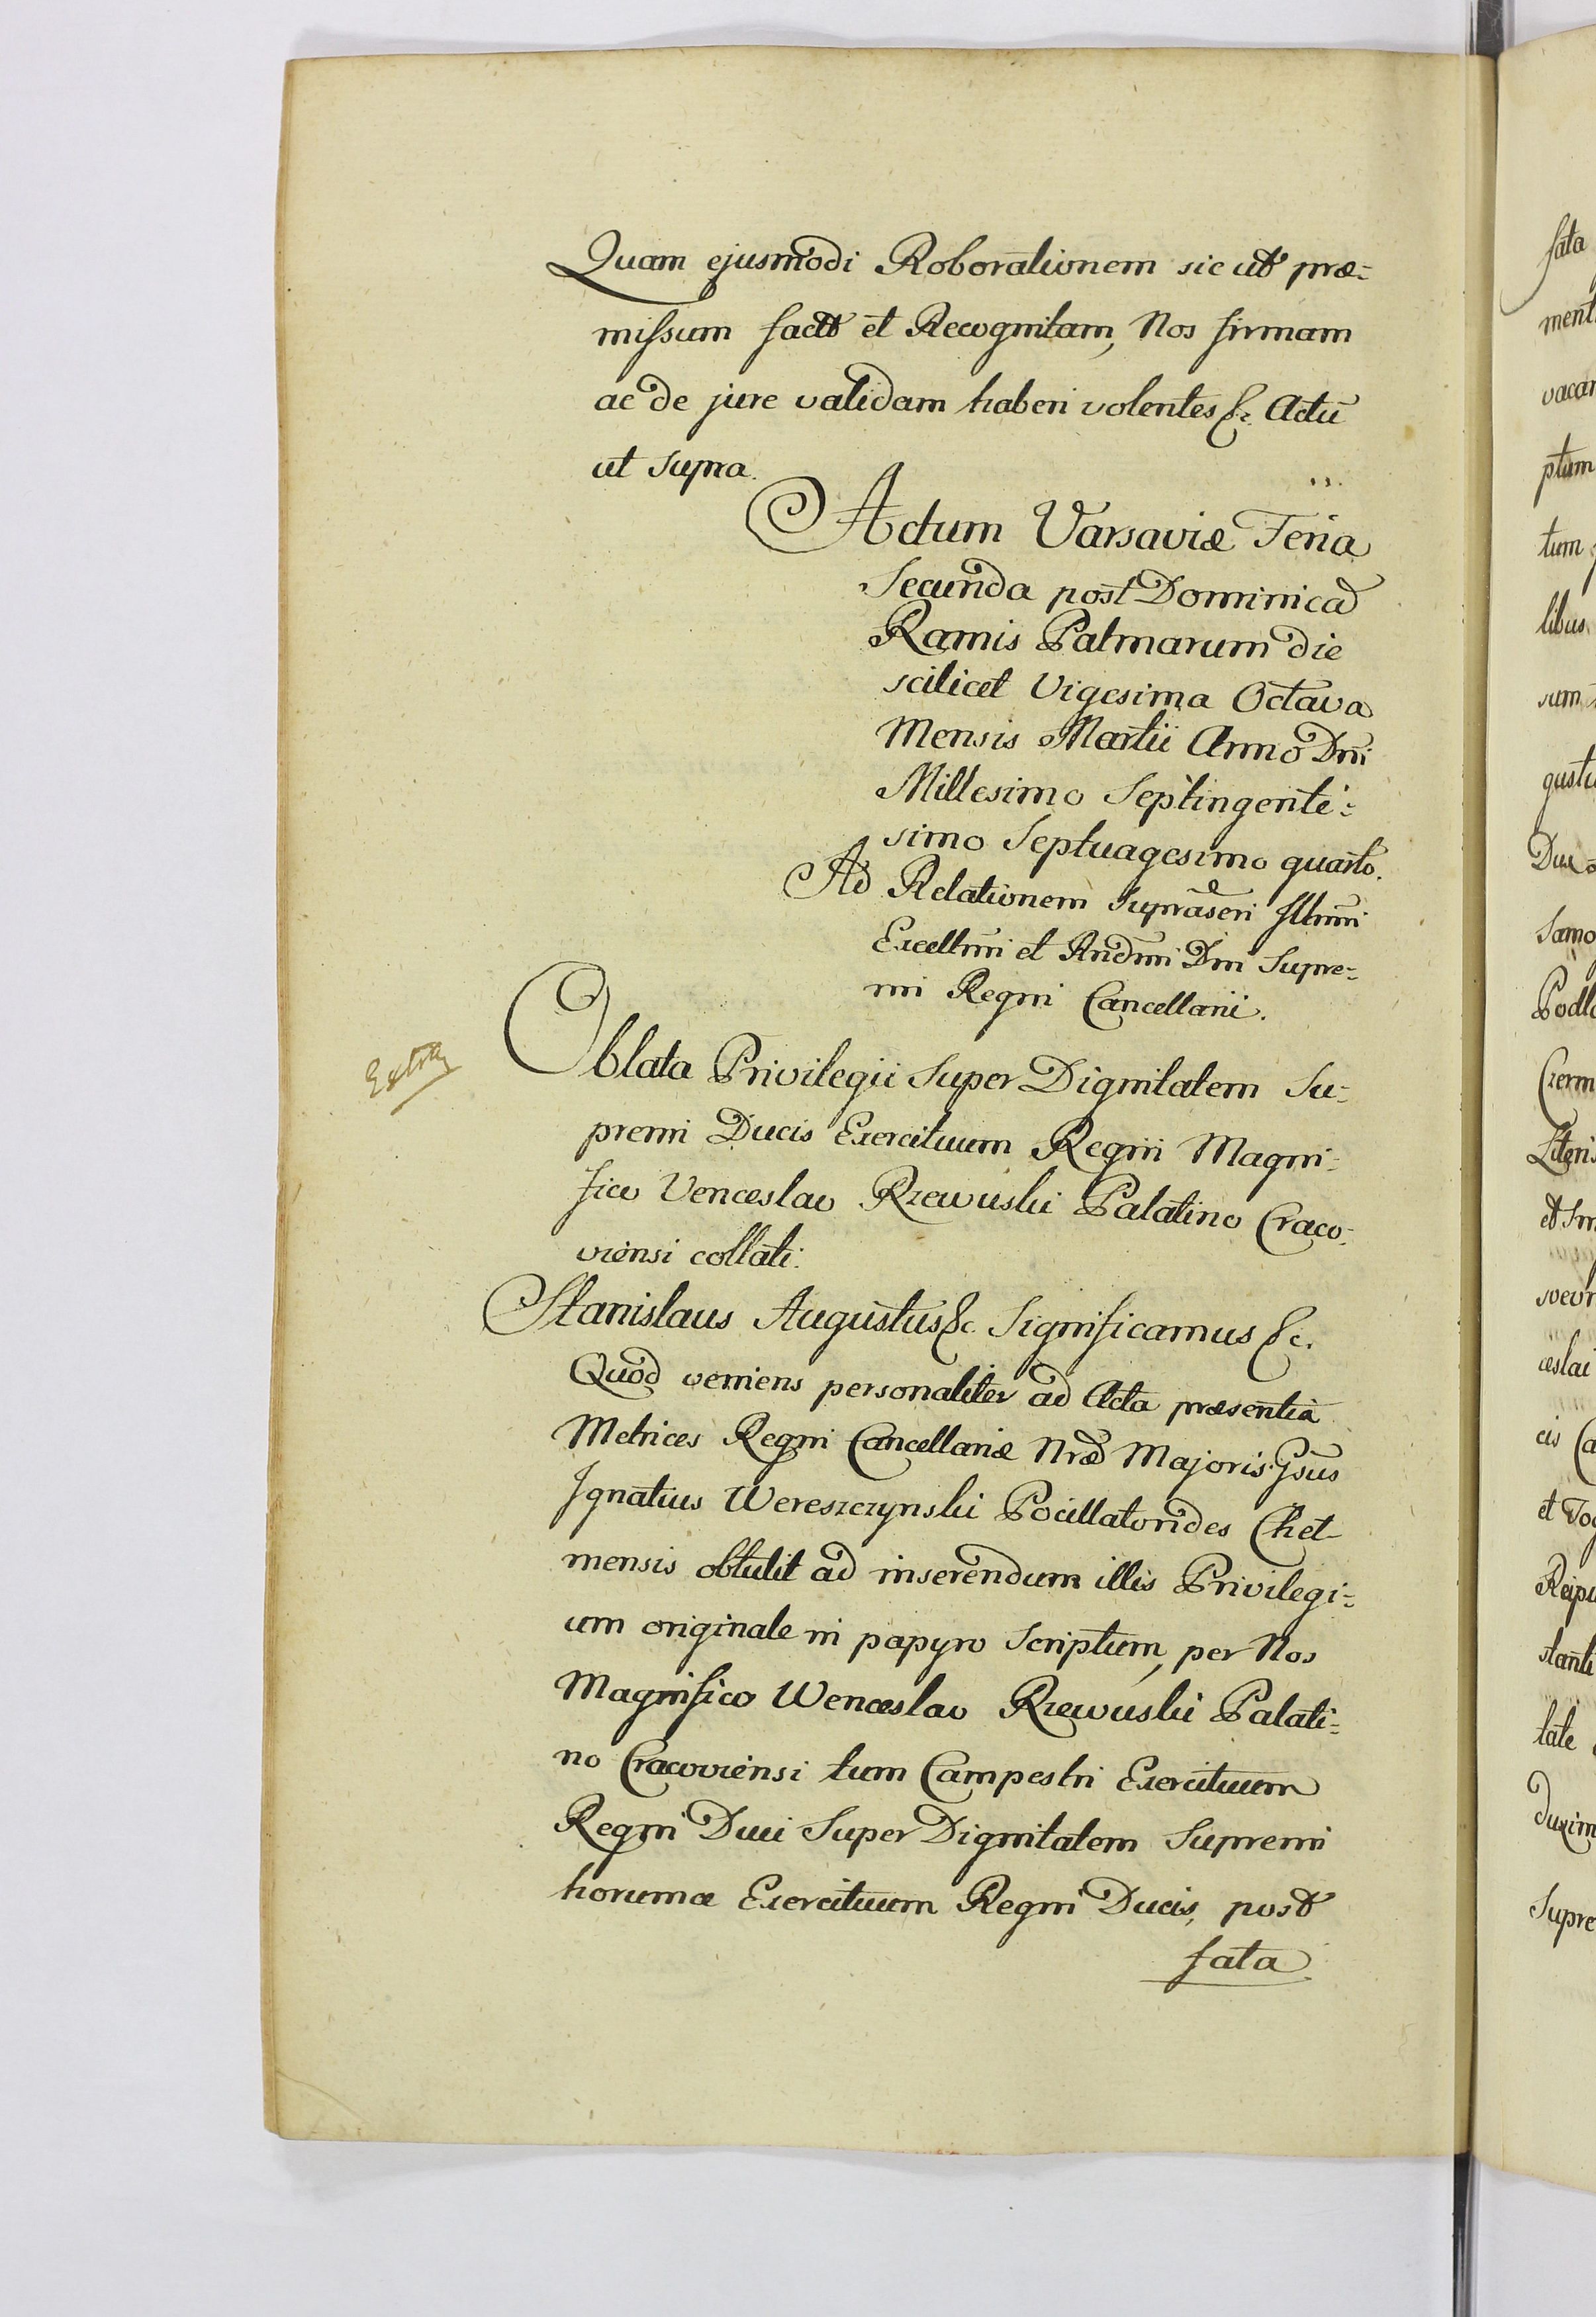 Quam ejusmodi Roborationem sic ut præ=
missum factt et Recognitam, Nos firmam
ac de jure validam haberi volentes &c. Actū
ut supra.
Actum Varsaviæ Feria
Secunda post Dominicā
Ramis Palmarum die
scilicet Vigesima Octava
Mensis Martii Anno Dni
Millesimo Septingente=
simo Septuagesimo quarto.
Ad Relationem supraseri Illmi
Excellmi et Rndmi Dni Supre=
mi Regni Cancellarii.
Extr
Oblata Privilegii super Dignitatem Su=
premi Ducis Exercituum Regni Magni=
fico Venceslao Rzewuski Palatino Craco=
viensi collati.
Stanislaus Augustus &c. Significamus &c.
Quod veniens personaliter ad Acta præsentia
Metrices Regni Cancellariæ Nræ Majoris Gsus
Ignatius Wereszczynski Pocillatorides Chel
mensis obtulit ad inserendum illis Privilegi=
um originale in papyro scriptum, per Nos
Magnifico Wenceslao Rzewuski Palati=
no Cracoviensi tum Campestri Exercituum
Regni Duci super Dignitatem Supremi
horumce Exercituum Regni Ducis, post
fata
fata
ment
vacan
ptum
tum
libus
sum
gustu
Dux
Samo
Podla
Czerm
Literis
et Sm
soevr
ceslai
cis Ca
et Tog
Reipu
stanti
tate
duxim
Supre